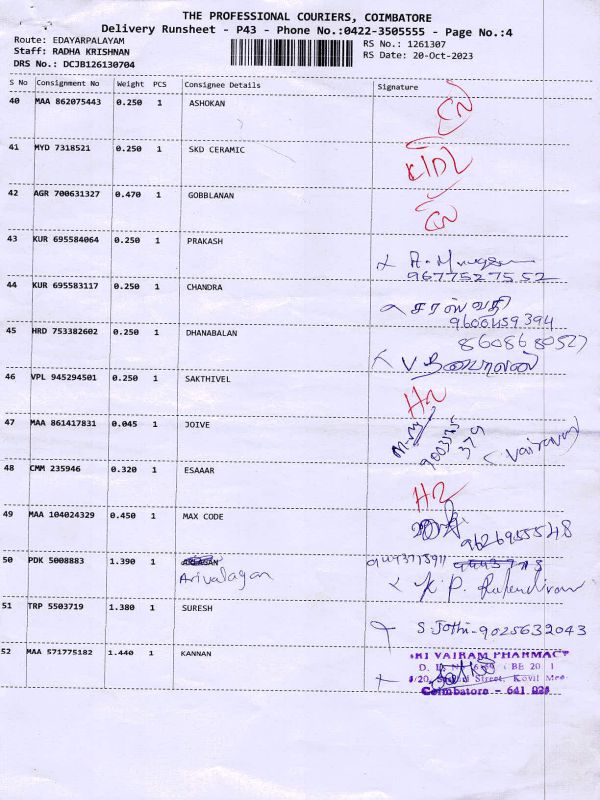 THE PROFESSIONAL COURIERS, COIMBATORE
Delivery Runsheet - P43 - Phone No.:0422-3505555 - Page No.:4
Route: EDAYARPALAYAM
Staff: RADHA KRISHNAN
DRS No.: DCJB126130704
RS No.: 1261307
RS Date: 20-Oct-2023
S No Consignment No Weight PCS Consignee Details Signature
40 MAA 862075443 0.250 1 ASHOKAN
41 MYD 7318521 0.250 1 SKD CERAMIC
42 AGR 700631327 0.470 1 GOBBLANAN
43 KUR 695584064 0.250 1 PRAKASH
9677527552
44 KUR 695583117 0.250 1 CHANDRA சரஸ்வதி
9600459394
45 HRD 753382602 0.250 1 DHANABALAN 8608680527
46 VPL 945294501 0.250 1 SAKTHIVEL
47 MAA 861417831 0.045 1 JOIVE
48 CMM 235946 0.320 1 ESAAAR
49 MAA 104024329 0.450 1 MAX CODE 9626955548
50 PDK 5008883 1.390 1
Arivalagan
51 TRP 5503719 1.380 1 SURESH
S. Jothi - 9025632043
52 MAA 571775182 1.440 1 KANNAN
SRI VAIRAM PHARMACY
Coimbatore - 641 025